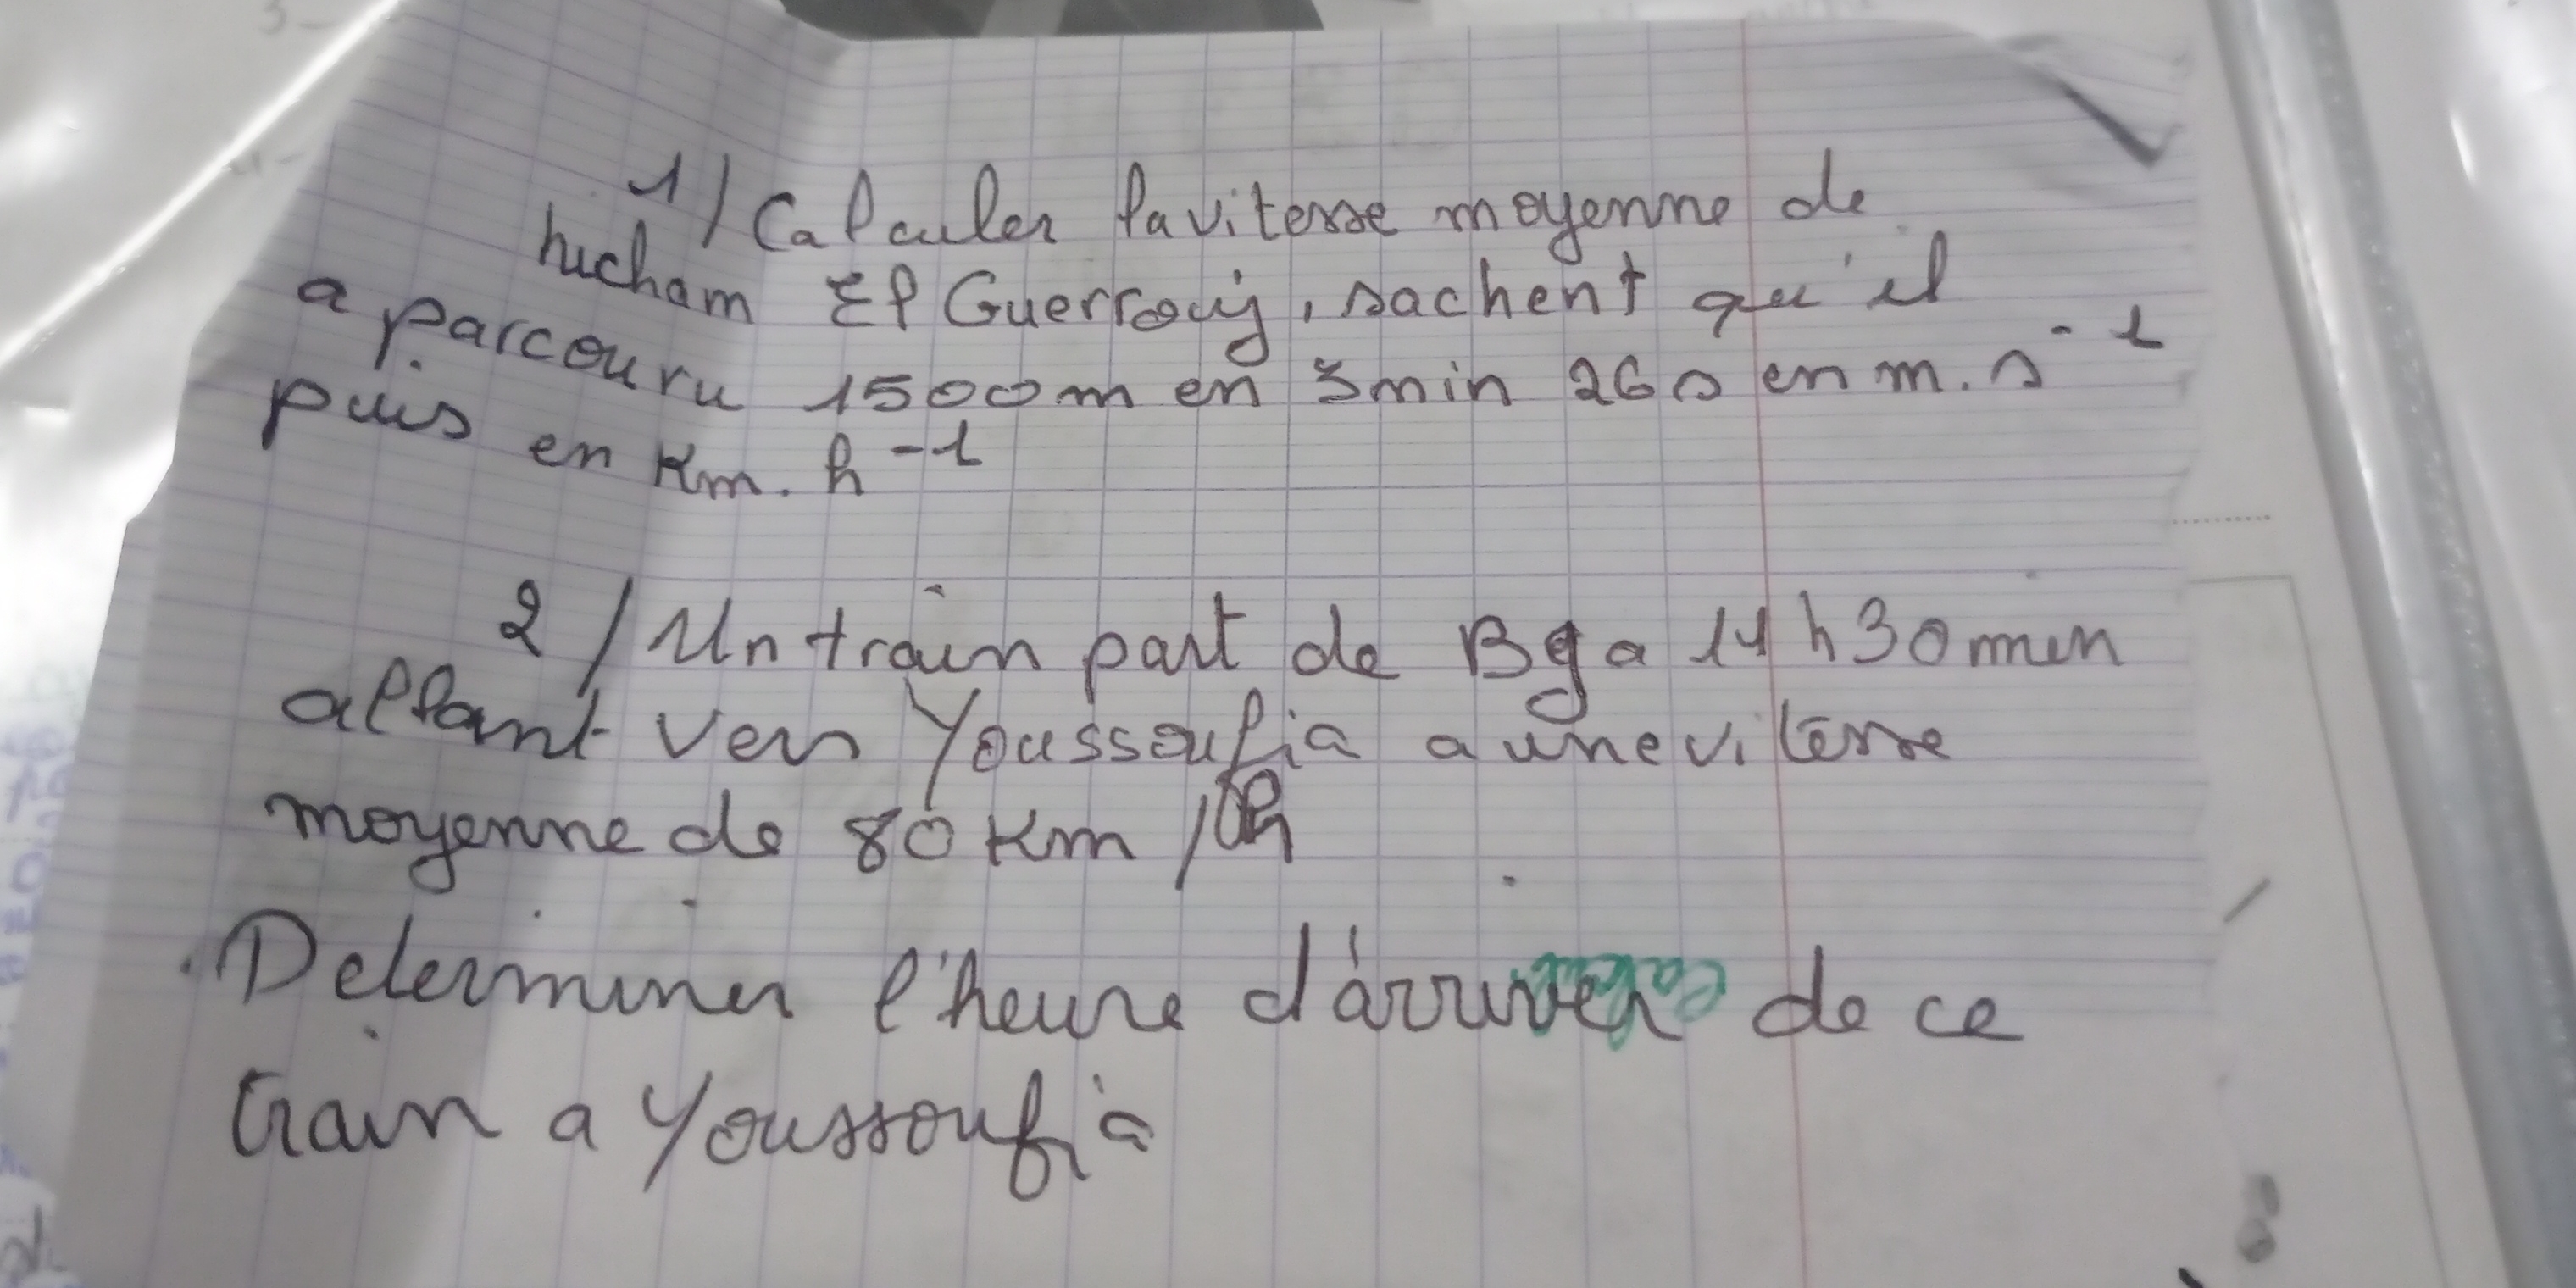 1/ Calculer la vitesse moyenne de
hicham El Guerrouj, sachent qu'il
a parcouru 1500m en 3min 26s en m.s⁻¹
puis en Km.h⁻¹
2/ Un train part de Bg a 14h30min
allant vers Youssoufia a une vitesse
moyenne de 80 Km/h
Determiner l'heure d'arriver de ce
train a Youssoufia